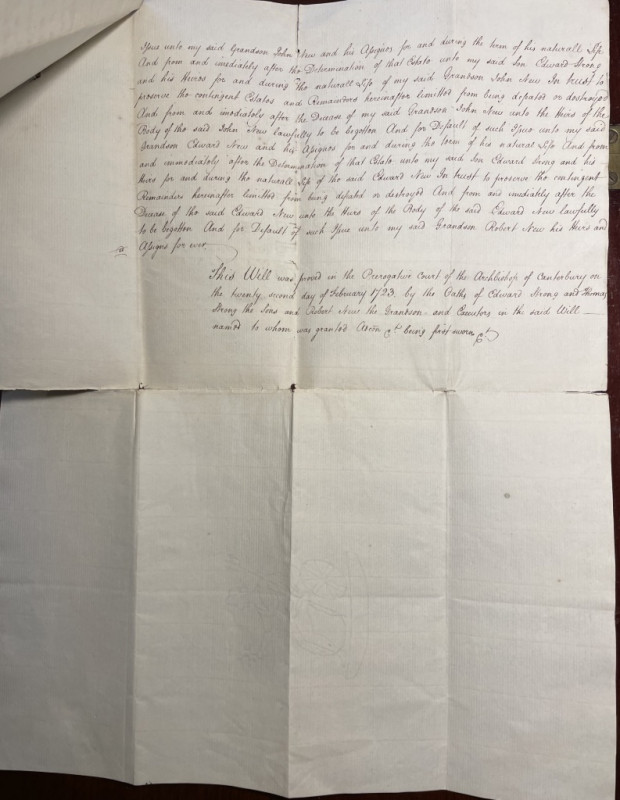 Issue unto my said Grandson John New and his Assignes for and during the term of his naturall Life
And from and imediately after the Determination of that Estate unto my said Son Edward Strong
and his Heires for and during the naturall Life of my said Grandson John New In trust to
preserve the contingent Estates and Remainders hereinafter limitted from being defeated or destroyed
And from and imediately after the Decease of my said Grandson John New unto the Heirs of the
Body of the said John New lawfully to be begotten And for Default of such Issue unto my said
Grandson Edward New and his Assignes for and during the term of his natural Life And from
and immediately after the Determination of that Estate unto my said Son Edward Strong and his
Heirs for and during the naturall Life of the said Edward New In trust to preserve the contingent
Remainders hereinafter limitted from being defeated or destroyed And from and imediately after the
Decease of the said Edward New unto the Heirs of the Body of the said Edward New lawfully
to be begotten And for Default of such Issue unto my said Grandson Robert New his Heirs and
Assigns for ever
This Will was proved in the Prerogative Court of the Archbishop of Canterbury on
the twenty second day of February 1723 by the Oaths of Edward Strong and Thomas
Strong the Sons and Robert New the Grandson and Executors in the said Will
named to whom was granted Admon &c being first sworn &c